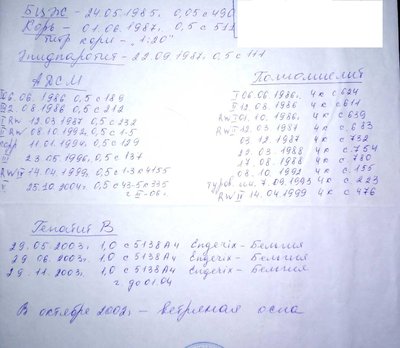 БЦЖ - 24.05.1985г. 0,05 с 490
Корь - 01.06.1987г. 0,5 с 512
титр кори - "1:20"
Эпидпаротит - 22.09.1987г. 0,5 с 111
АДСМ
06.06.1986 0,5 с 189
12.08.1986 0,5 с 212
I RW 12.03.1987 0,5 с 232
II RW 08.10.1992, 0,5 с 1-5
11.01.1994г. 0,5 с 129
23.05.1996, 0,5 с 137
RW IV 14.04.1999г. 0,5 1-3 с 4155
25.10.2004г. 0,5 с 43-5 с 335
г. II-08г.
Полиомиелит
I 06.06 1986г. 4к с 624
II 12.08 1986 4к с 611
RW I 01.10. 1986г. 4к с 639
RW II 12.03 1987 4к с 683
03 12. 1987 4к с 732
22 03. 1988 4к с 754
17. 08. 1988 4к с 780
08. 10. 1992 4к с. 155
7.09.1993 4к с 223
RW II 14.04.1999 4к с 476
Гепатит В
29.05 2003г. 1,0 с 5138А4 Енджечіх - Бельгия
29. 06 2003г. 1.0 с 5138А4 Енджечіх - Бельгия
29. 11. 2003г. 1.0 с 5138А4 Енджечіх - Бельгия
г. до 01.04
В октябре 2002г - ветряная оспа